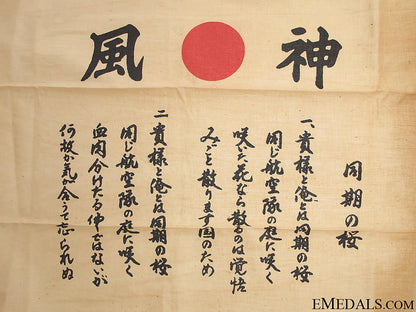 神風
同期の桜
一、貴様と俺とは同期の桜
同じ航空隊の庭に咲く
咲いた花なら散るのは覚悟
みごと散ります国のため
二 貴様と俺とは同期の桜
同じ航空隊の庭に咲く
血肉分けたる仲ではないが
何故か気が合うて忘られぬ
EMEDALS.COM